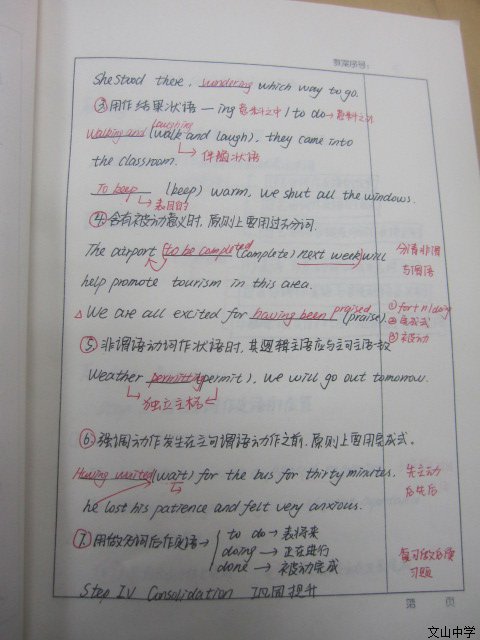 教案序号:
She stood there, wondering which way to go.
③用作结果状语 — ing 意料之中 / to do → 意料之外
Walking and laughing (walk and laugh), they came into
→ 伴随状语
the classroom.
To beep (beep) warm, we shut all the windows.
→ 表目的
④含有被动意义时,原则上要用过去分词.
The airport (to be completed (complete) next week) will
分清非谓
与谓语
help promote tourism in this area.
△ We are all excited for having been praised (praise).
① for + n / doing
② 完成式
③ 被动
⑤ 非谓语动词作状语时,其逻辑主语应与主句主语一致
Weather permitting (permit), we will go out tomorrow.
→ 独立主格
⑥强调动作发生在主句谓语动作之前,原则上要用完成式.
Having waited (wait) for the bus for thirty minutes,
he lost his patience and felt very anxious.
先主动
后先后
⑦ 用做名词后作定语 →
to do → 表将来
doing → 正在进行
done → 被动完成
习题
Step IV Consolidation 巩固提升
第 页
文山中学